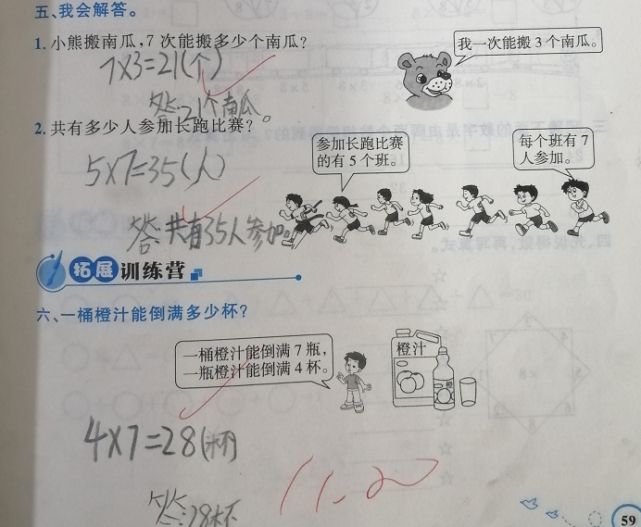 五、我会解答。
1. 小熊搬南瓜,7 次能搬多少个南瓜?
我一次能搬 3 个南瓜。
7×3=21(个)
答:21个南瓜。
2. 共有多少人参加长跑比赛?
参加长跑比赛
的有 5 个班。
每个班有 7
人参加。
5×7=35(人)
答:共有35人参加。
拓展训练营
六、一桶橙汁能倒满多少杯?
一桶橙汁能倒满 7 瓶,
一瓶橙汁能倒满 4 杯。
橙汁
4×7=28(杯)
答:28杯
11.2
59